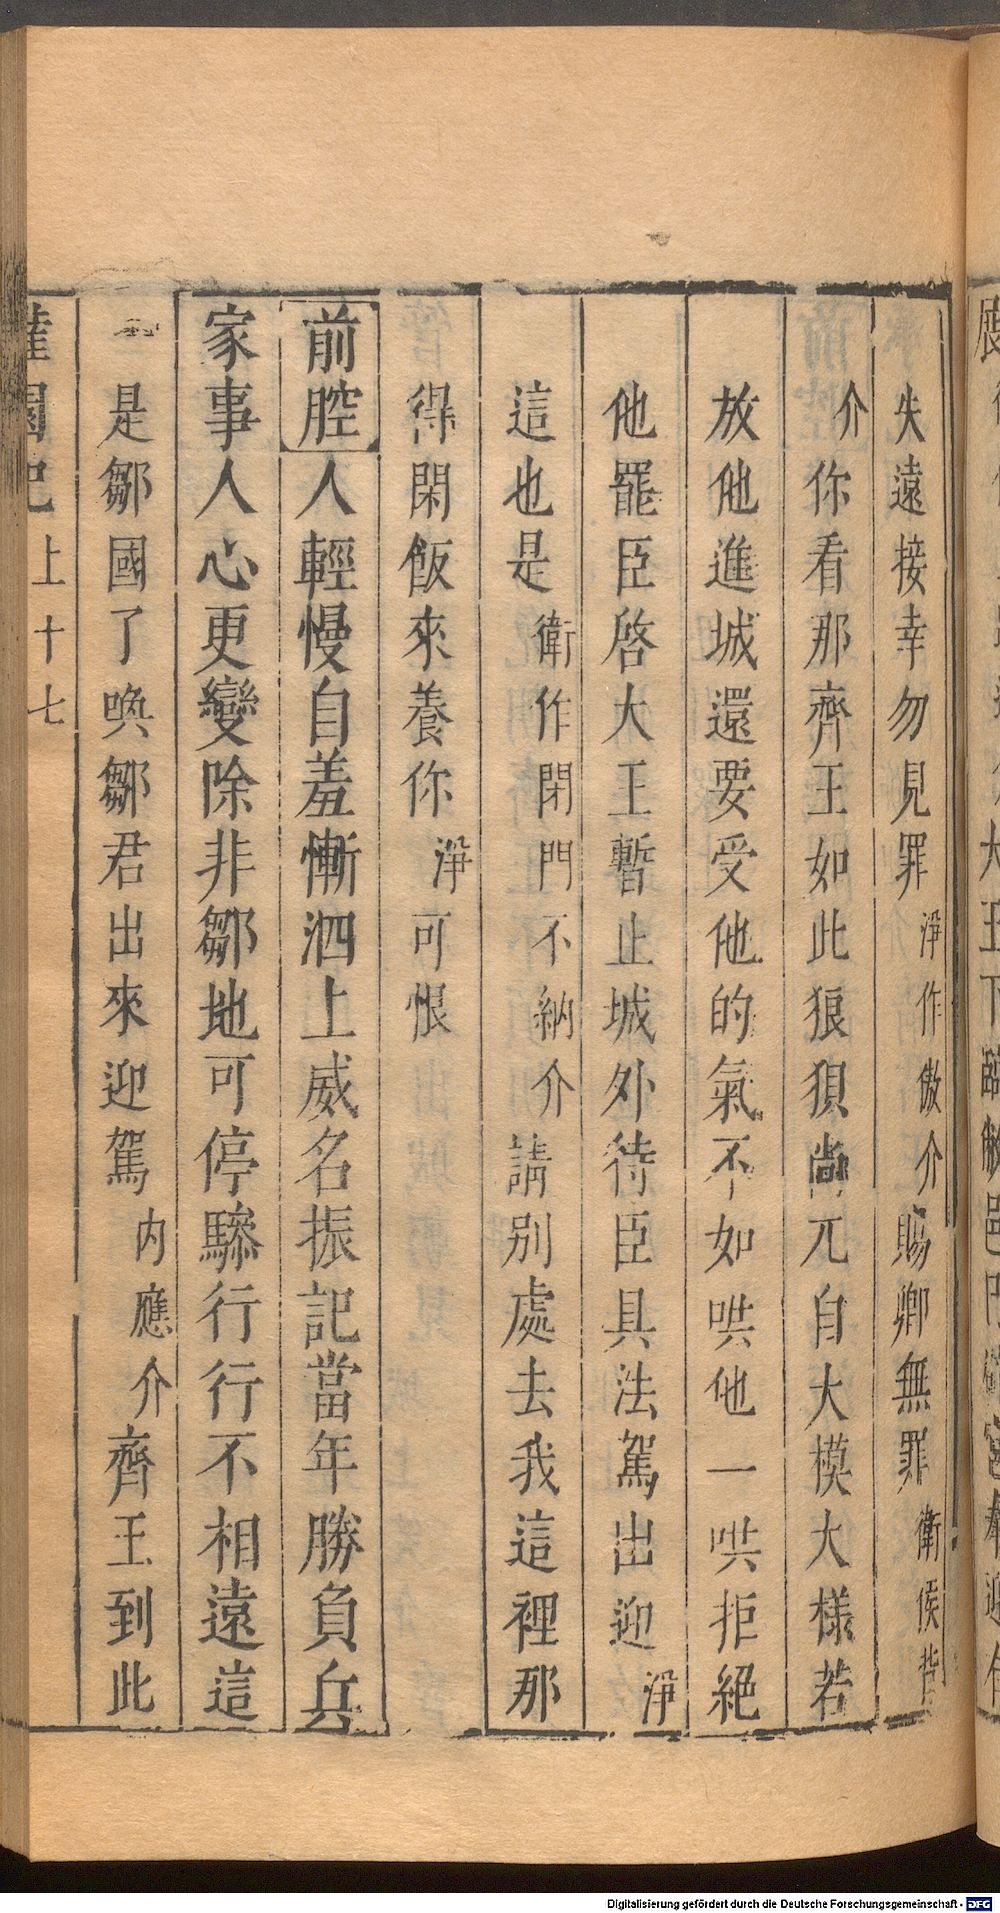 失遠接幸勿見罪淨作傲介賜卿無罪衛侯背
介你看那齊王如此狼狽尚兀自大模大樣若
放他進城還要受他的氣不如哄他一哄拒絕
他罷臣啓大王暫止城外待臣具法駕出迎淨
這也是衛作閉門不納介請別處去我這裡那
得閑飯來養你淨可恨
前腔人輕慢自羞慚泗上威名振記當年勝負兵
家事人心更變除非鄒地可停驂行行不相遠這
是鄒國了喚鄒君出來迎駕内應介齊王到此
園記 上 十七
Digitalisierung gefördert durch die Deutsche Forschungsgemeinschaft - DFG